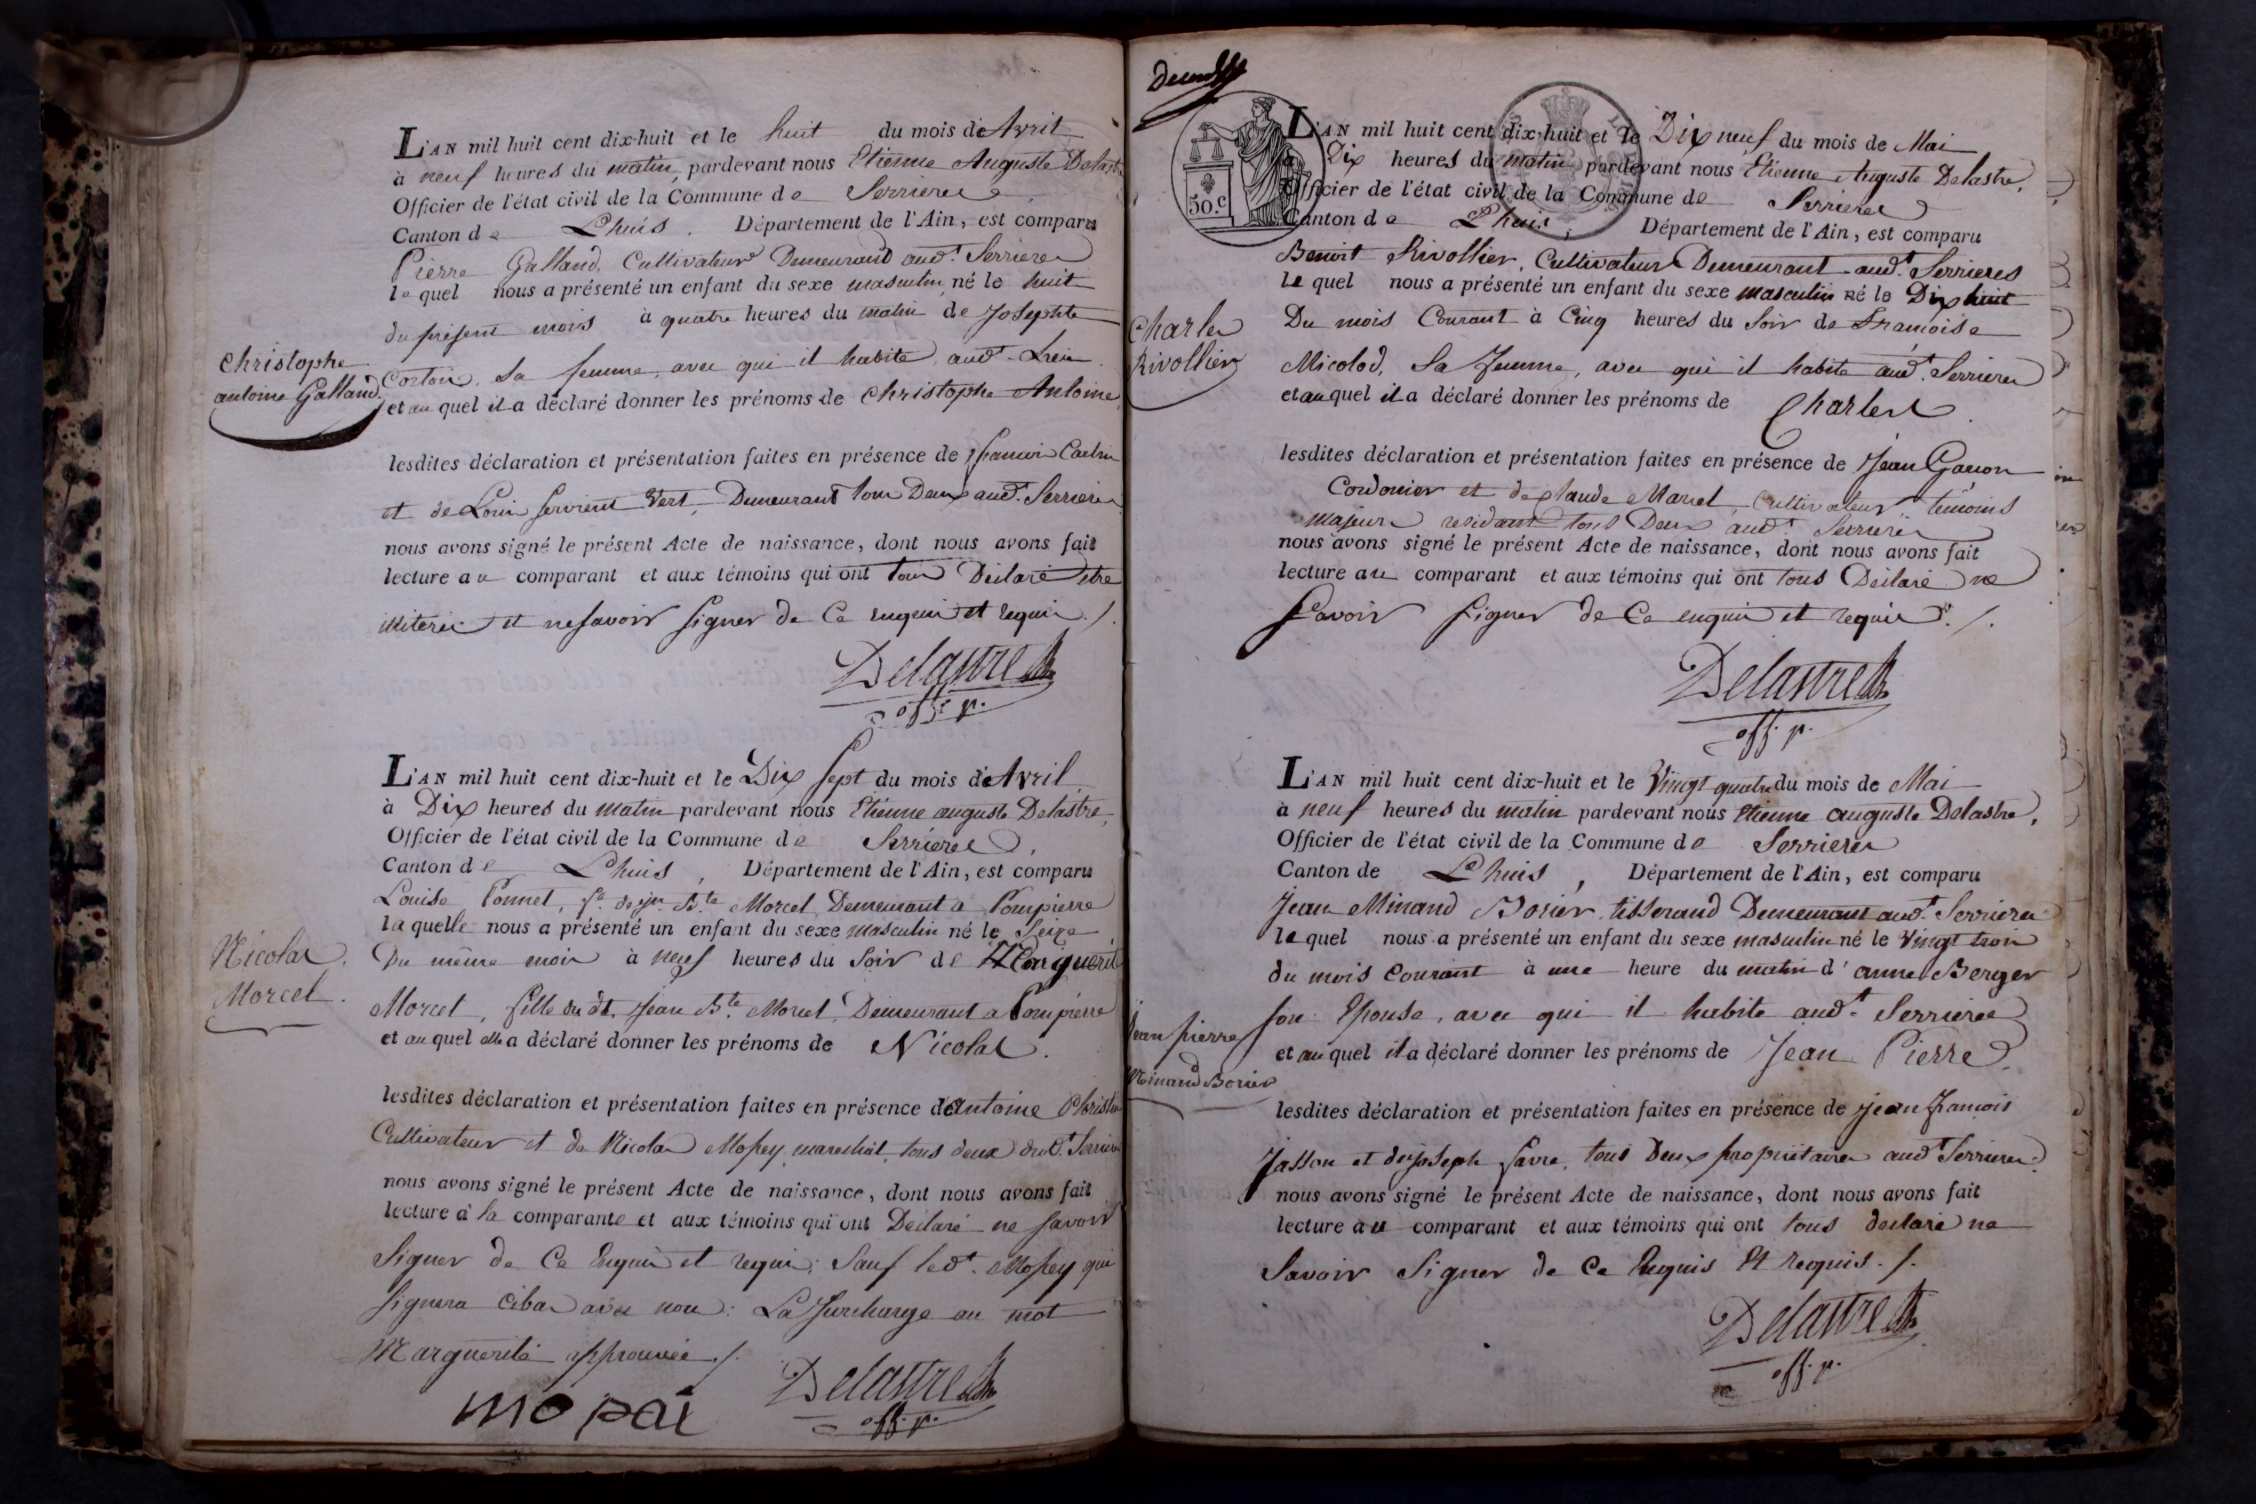 L'AN mil huit cent dix-huit et le huit du mois d'Avril
à neuf heures du matin, pardevant nous Etienne Auguste Delastre
Officier de l'état civil de la Commune de Serrieres
Canton de L'huis. Département de l'Ain, est comparu
Pierre Galland, Cultivateur Demeurand aud.t Serrieres
lequel nous a présenté un enfant du sexe masculin, né le huit
du présent mois à quatre heures du matin de Josephte
Christophe
antoine Galland.
sa femme, avec qui il habite, aud.t
et auquel il a déclaré donner les prénoms de Christophe Antoine
lesdites déclaration et présentation faites en présence de françois
et de Louis servient Vert, Demeurant tous Deux aud.t Serrieres
nous avons signé le présent Acte de naissance, dont nous avons fait
lecture au comparant et aux témoins qui ont tous Déclaré etre
et ne savoir signer de Ce enquis et requis ./.
Delastre
off. p.
L'AN mil huit cent dix-huit et le Dix sept du mois d'Avril
à Dix heures du matin pardevant nous Etienne auguste Delastre,
Officier de l'état civil de la Commune de Serrieres,
Canton de L'huis, Département de l'Ain, est comparu
Louise Ponnet, f.e de jn. B.te Morcel Demeurant a Pompierre
laquelle nous a présenté un enfant du sexe masculin né le Seize
Nicolas
Morcel.
Du même mois à neuf heures du Soir de Marguerite
Morcel, fille du dt. Jean B.te Morcel Demeurant a Pompierre
et auquel elle a déclaré donner les prénoms de Nicolas.
lesdites déclaration et présentation faites en présence d'antoine Christin
Cultivateur et de Nicolas Mopey, marechal, tous deux dud.t Serrieres
nous avons signé le présent Acte de naissance, dont nous avons fait
lecture à la comparante et aux témoins qui ont Déclaré ne savoir
Signer de Ce Enquis et requis; Sauf led.t Mopey qui
signera cibas avec nous: La Surcharge au mot
Marguerite approuvée ./.
mopai
Delastre
off. p.
50.c
L'AN mil huit cent dix-huit et le Dix neuf du mois de Mai
à Dix heures du matin pardevant nous Etienne Auguste Delastre,
Officier de l'état civil de la Commune de Serrieres
Canton de L'huis, Département de l'Ain, est comparu
Benoit Rivollier, Cultivateur Demeurant aud.t Serrieres
lequel nous a présenté un enfant du sexe masculin né le Dix huit
Charles
Rivollier
Du mois Courant à Cinq heures du Soir de françoise
Micolod, Sa femme, avec qui il habite aud.t Serrieres
et auquel il a déclaré donner les prénoms de Charles.
lesdites déclaration et présentation faites en présence de Jean
Cordonier et de Claude Marcel, Cultivateur témoins
majeurs residant tous Deux aud.t Serrieres
nous avons signé le présent Acte de naissance, dont nous avons fait
lecture au comparant et aux témoins qui ont tous Déclaré ne
Savoir Signer de Ce enquis et requis ./.
Delastre
off. p.
L'AN mil huit cent dix-huit et le Vingt quatre du mois de Mai
à neuf heures du matin pardevant nous Etienne auguste Delastre,
Officier de l'état civil de la Commune de Serrieres
Canton de L'huis, Département de l'Ain, est comparu
Jean Minand Borier, tisserand Demeurant aud.t Serrieres
lequel nous a présenté un enfant du sexe masculin né le Vingt trois
du mois Courant à une heure du matin d'anne Berger
Jean pierre
Minand Borier
son Epouse, avec qui il habite aud.t Serrieres
et auquel il a déclaré donner les prénoms de Jean Pierre.
lesdites déclaration et présentation faites en présence de jean françois
et de joseph favre, tous Deux propriétaires aud.t Serrieres
nous avons signé le présent Acte de naissance, dont nous avons fait
lecture au comparant et aux témoins qui ont tous declaré ne
Savoir Signer de Ce Enquis Et requis ./.
Delastre
off. p.